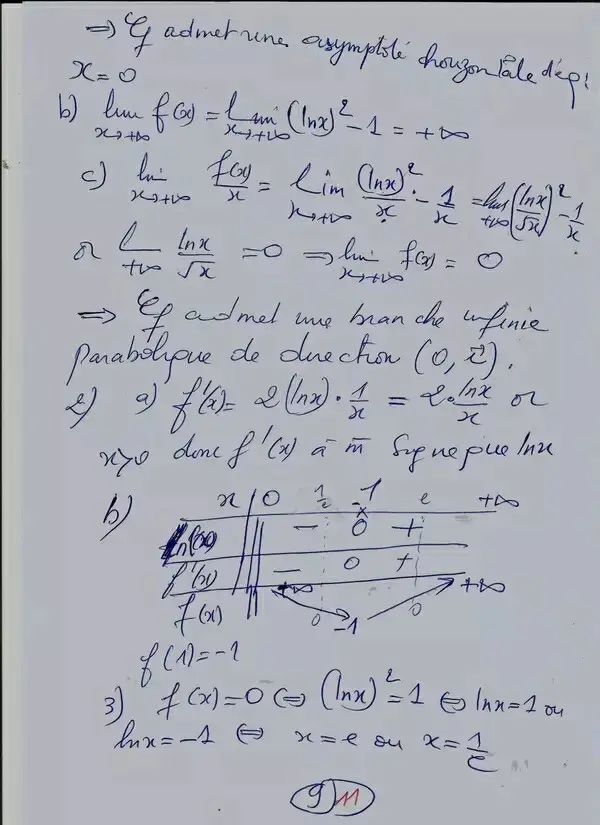 ⇒ 𝒞f admet une asymptote horizontale d'éq:
x = 0
b) lim f(x) = lim (lnx)² - 1 = +∞
x→+∞ x→+∞
c) lim f(x)/x = lim (lnx)²/x - 1/x = lim (lnx/√x)² - 1/x
x→+∞ x→+∞ +∞
or lim lnx/√x = 0 ⇒ lim f(x) = 0
+∞ x→+∞
⇒ 𝒞f admet une branche infinie
parabolique de direction (0, i⃗).
2) a) f'(x) = 2(lnx)·1/x = 2·lnx/x or
x>0 donc f'(x) à m̄ signe que lnx
b) x 0 1/e 1 e +∞
ln(x) - 0 +
f'(x) - 0 +
f(x) +∞ 0 -1 0 +∞
f(1) = -1
3) f(x) = 0 ⇔ (lnx)² = 1 ⇔ lnx = 1 ou
lnx = -1 ⇔ x = e ou x = 1/e
9 11